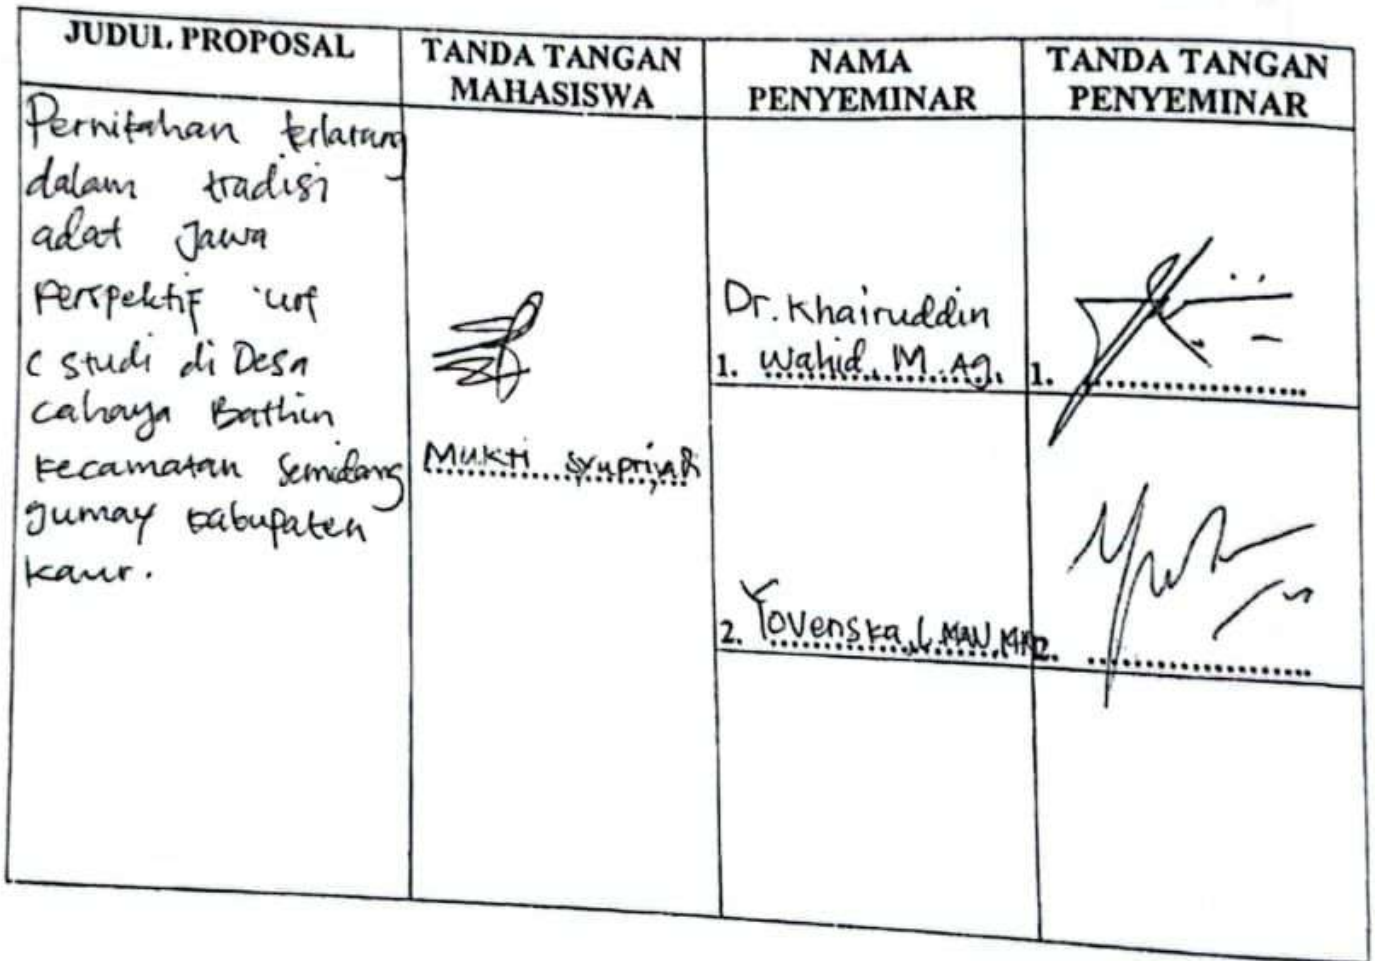 JUDUL PROPOSAL
TANDA TANGAN
MAHASISWA
NAMA
PENYEMINAR
TANDA TANGAN
PENYEMINAR
Pernikahan terlarang
dalam tradisi
adat Jawa
Perspektif 'urf
( studi di Desa
cahaya Bathin
kecamatan Semidang
gumay kabupaten
kaur.
Mukti Syupriyadi
Dr. Khairuddin
1. Wahid, M. Ag.
1.
2. Yovenska, L. MAN,
2.